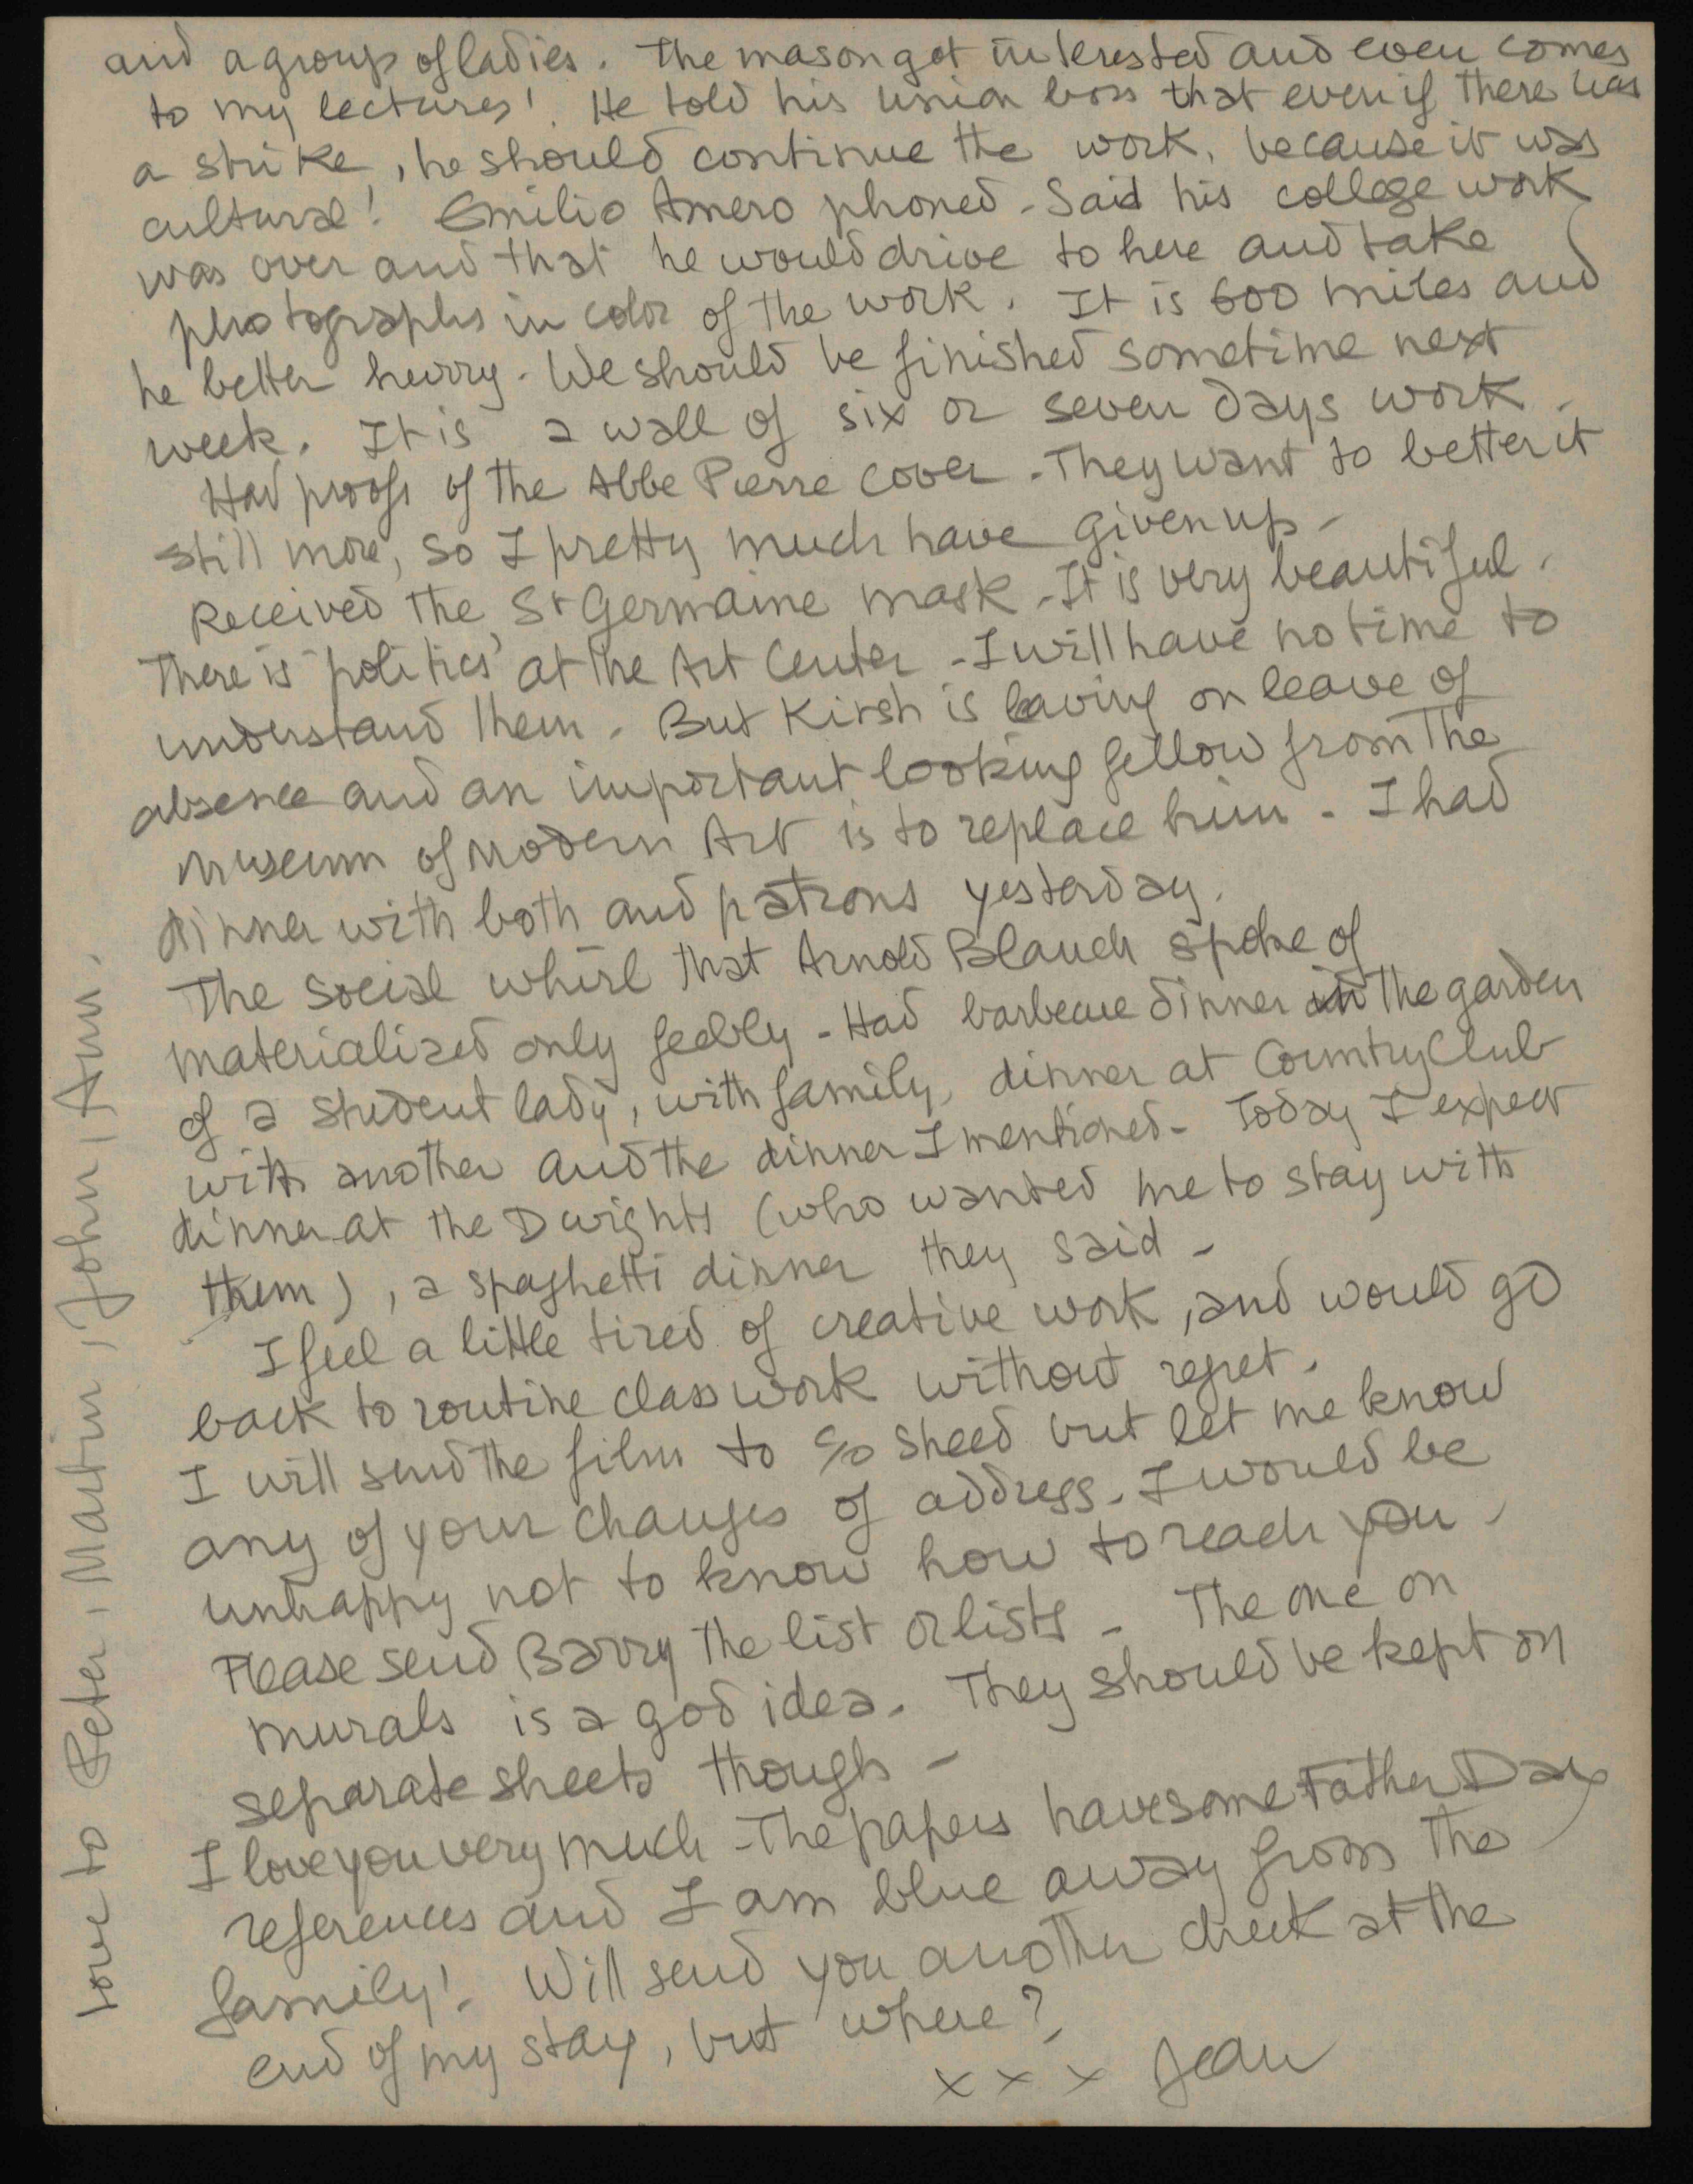 and a group of ladies. The mason got interested and even comes
to my lectures! He told his union boss that even if there was
a strike, he should continue the work, because it was
cultural! Emilio Amero phoned - Said his college work
was over and that he would drive to here and take
photographs in color of the work. It is 600 miles and
he better hurry. We should be finished sometime next
week. It is a wall of six or seven days work.
Had proofs of the Abbe Pierre cover - They want to better it
still more, so I pretty much have given up -
Received the St Germaine mask - It is very beautiful.
There is "politics" at the Art Center - I will have no time to
understand them. But Kirsh is leaving on leave of
absence and an important looking fellow from the
Museum of Modern Art is to replace him - I had
dinner with both and patrons yesterday.
The social whirl that Arnold Blanch spoke of
materialized only feebly - Had barbecue dinner in the garden
of a student lady, with family, dinner at Country Club
with another and the dinner I mentioned - Today I expect
dinner at the Dwights (who wanted me to stay with
them), a spaghetti dinner they said -
I feel a little tired of creative work, and would go
back to routine classwork without regret.
I will send the film to c/o Sheed but let me know
any of your changes of address. I would be
unhappy not to know how to reach you.
Please send Barry the list or lists - The one on
murals is a god idea. They should be kept on
separate sheets though -
I love you very much - The papers have some Father Day
references and I am blue away from the
family! Will send you another check at the
end of my stay, but where?
x x x Jean
love to Peter, Martin, John, Ann.